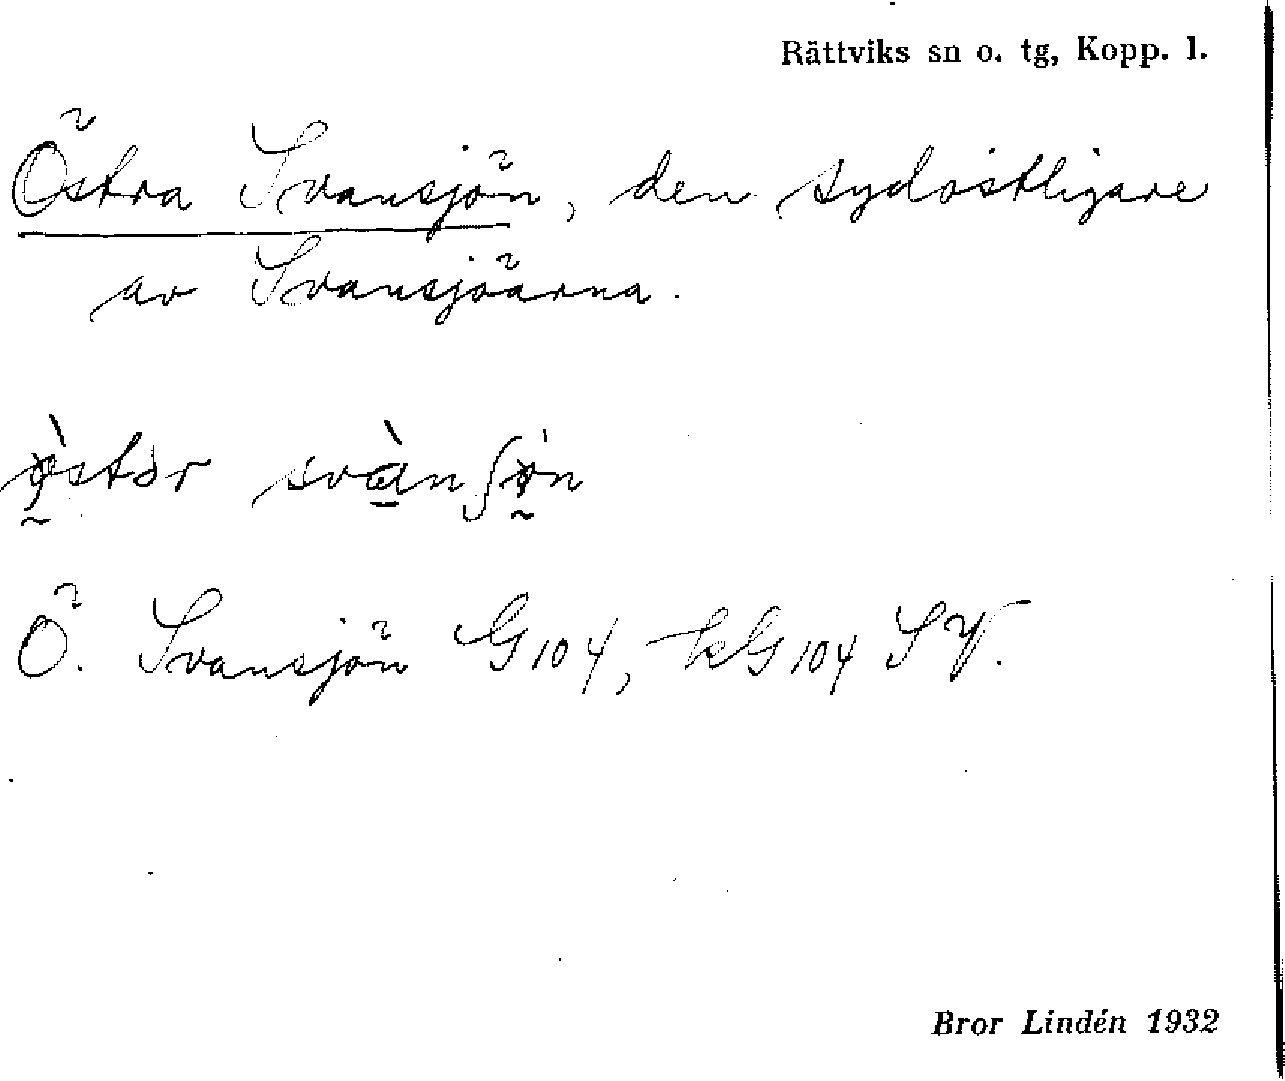 Rättviks sn o. tg, Kopp. l.
Östra Svansjön, den sydostligare
av Svansjöarna.
ø̀stər svànʃøn
Ö. Svansjön G104, kG104 SV.
Bror Lindén 1932